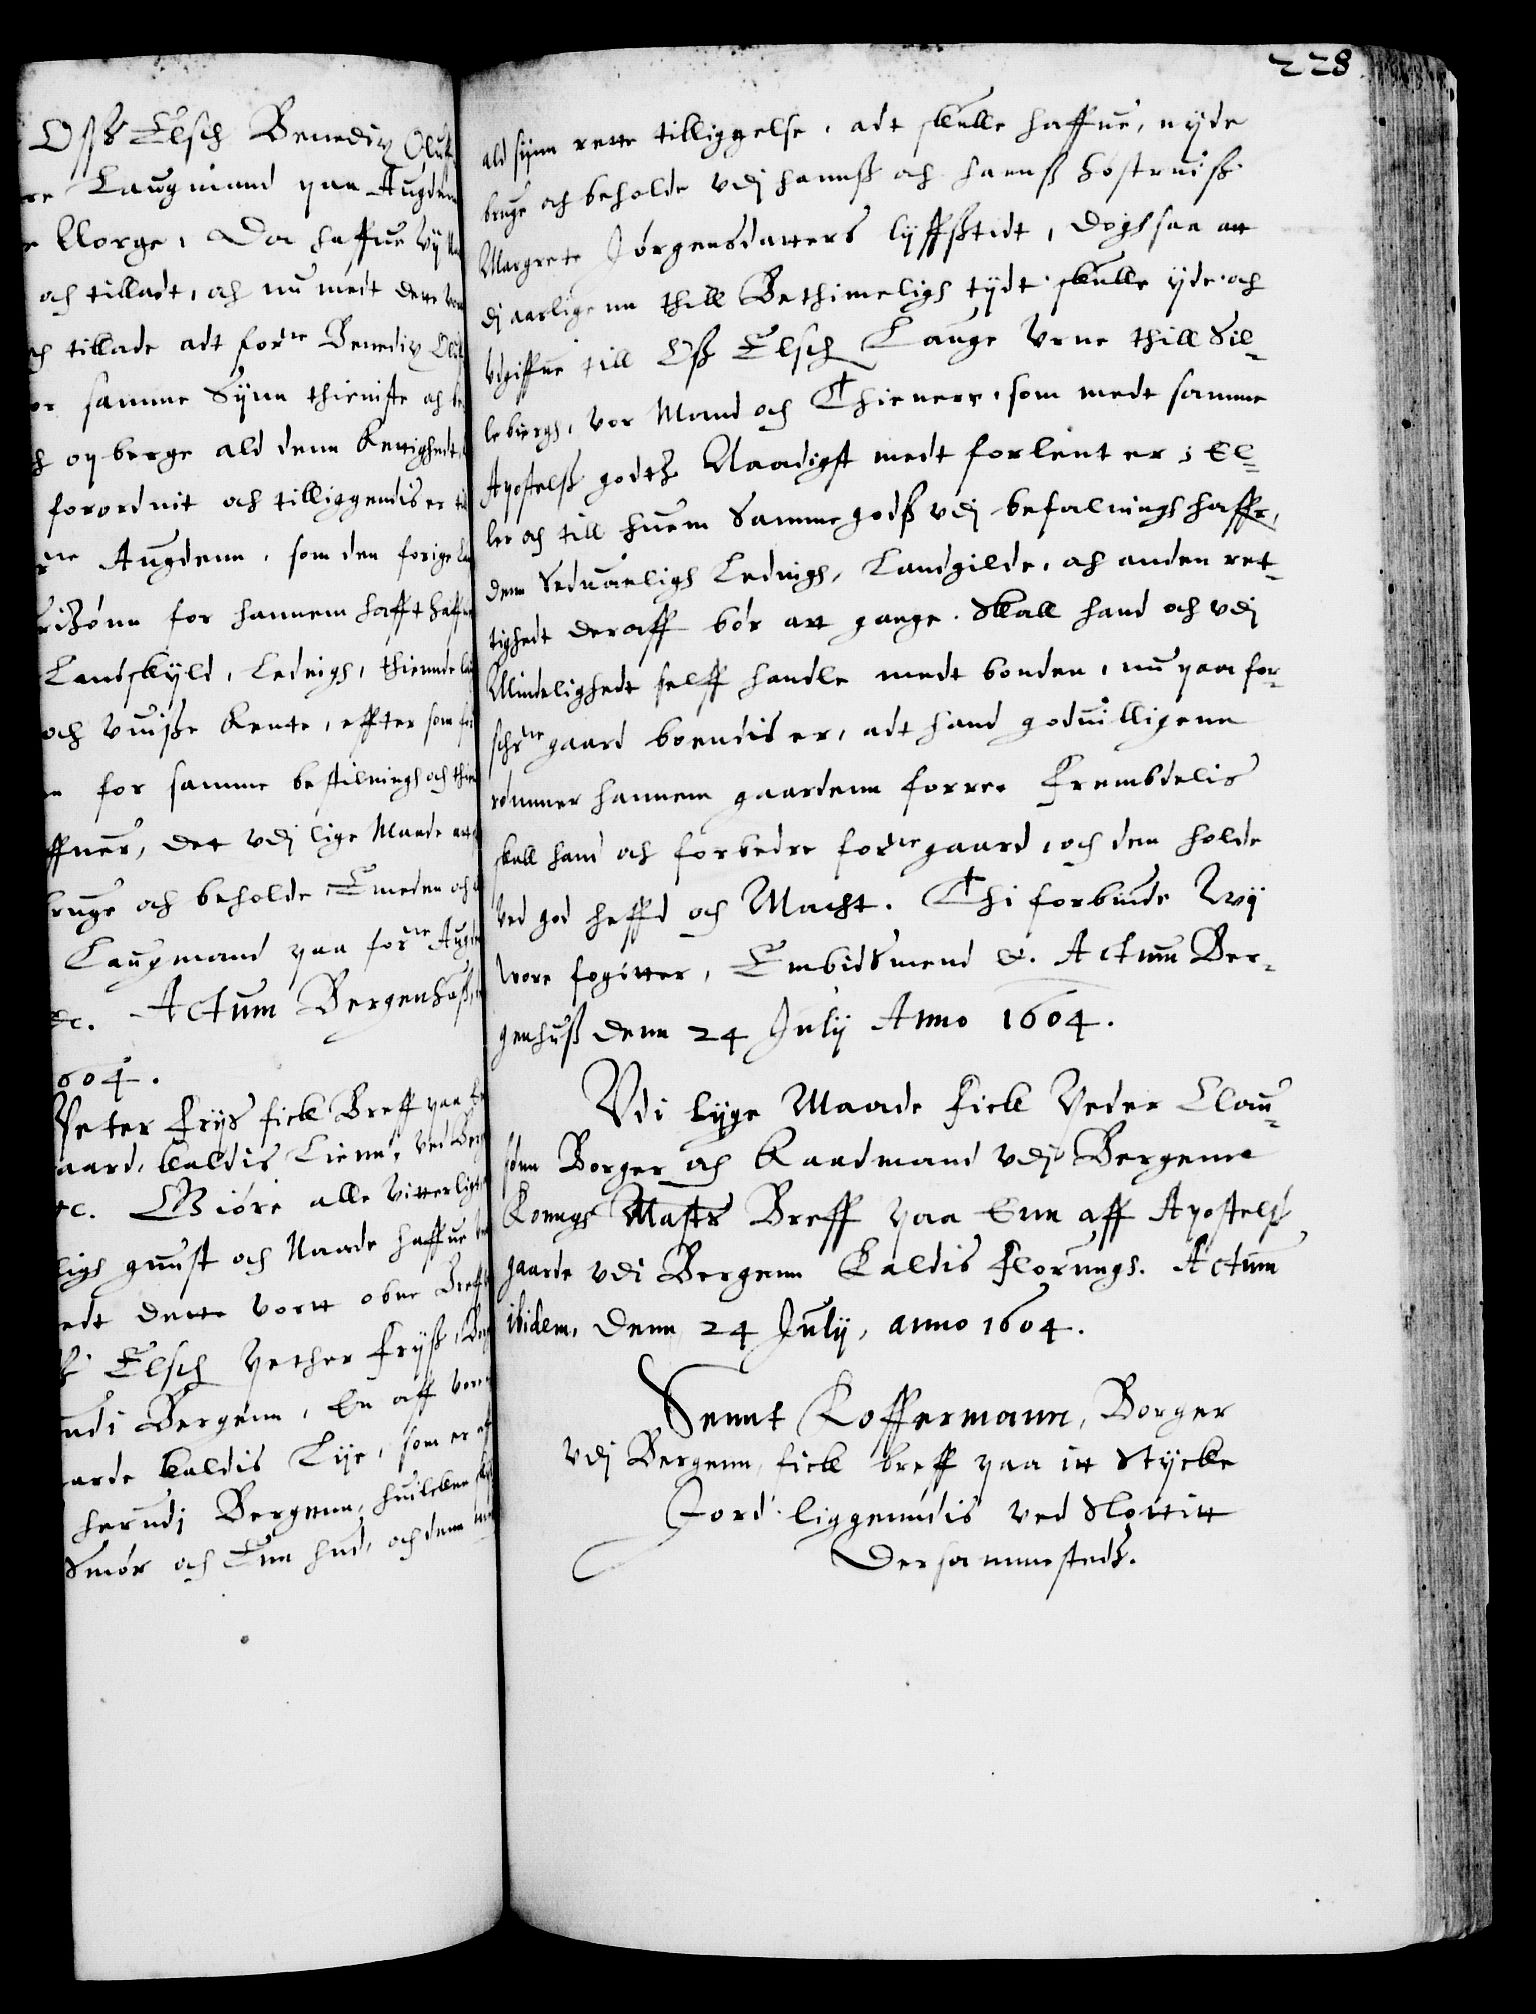 Oss Elsch Benedix Oluf
Laugmand paa Augden
Norge, Da haffue Wij
och tilladt, och nu medt dette
och tillade adt forne Benedix
samme Synn thieniste och
opberge ald denn Rettighedt,
forordnit och tilliggendis er
Augdenn, som den forige
for hannem hafft
Landskyld, Ledings, thiennde
och vuisse Rente, effter som
for samme bestilnings och
det vdj lige Maade
bruge och beholde Emeden och
Laugmand paa forne
&c. Actum Bergenhuss,
604.
Peter Friis fick Breff paa
gaard, kaldis Lienn, ved
&c. Giöre alle vitterligt
gunst och Naade haffue
medt dette vortt obne Breff
Elsch Pether Friiss,
udi Bergenn, En aff vore
gaarde kaldis Lije, som er
herudj Bergenn, huilckenn
Smör och Enn hud, och denn
228
ald sijnn rette tilliggelse, adt skulle haffue, nyde
bruge och beholde vdj hanns och hanss höstruiss
Margrete Jörgensdatters lyffsstidt, Doghsaa att
dj aarligenn thill Bethimeligh tydt skulle yde och
vdgiffue till Oss Elsch Lauge Vrne thill Sil-
lebiergh, vor Mand och Thienere, som medt samme
Apostelss godtz Naadigst medt forlent er; El-
ler och till huem Samme godss vdj befalnings haffr,
denn Seduanligh Ledings, Landgilde, och anden ret-
tighedt deraff bör att gange. Skall hand och vdj
Mindelighedt self handle medt bonden, nu paa for-
schrne gaard boendis er, adt hand goduilligenn
römmer hannem gaardenn forre. Frembdelis
skall hand och forbedre forne gaard, och den holde
ved god heffd och Macht. Thi forbiude Wij
wore fogitter, Embidsmend &. Actum Ber-
genhuss denn 24 Julij Anno 1604.
Vdi lijge Maade Fick Peder Clau-
sönn Borger och Raadmand vdj Bergenn
Konngs Maits Breff paa Enn aff Apostels
gaarde vdi Bergenn Kaldis Florungs. Actum
ibidem, Denn 24 Julij, anno 1604.
Sennt Koffermann, Borger
vdj Bergenn, fick breff paa itt Stycke
Jord liggenndis ved Slottitt
Dersammestedz.